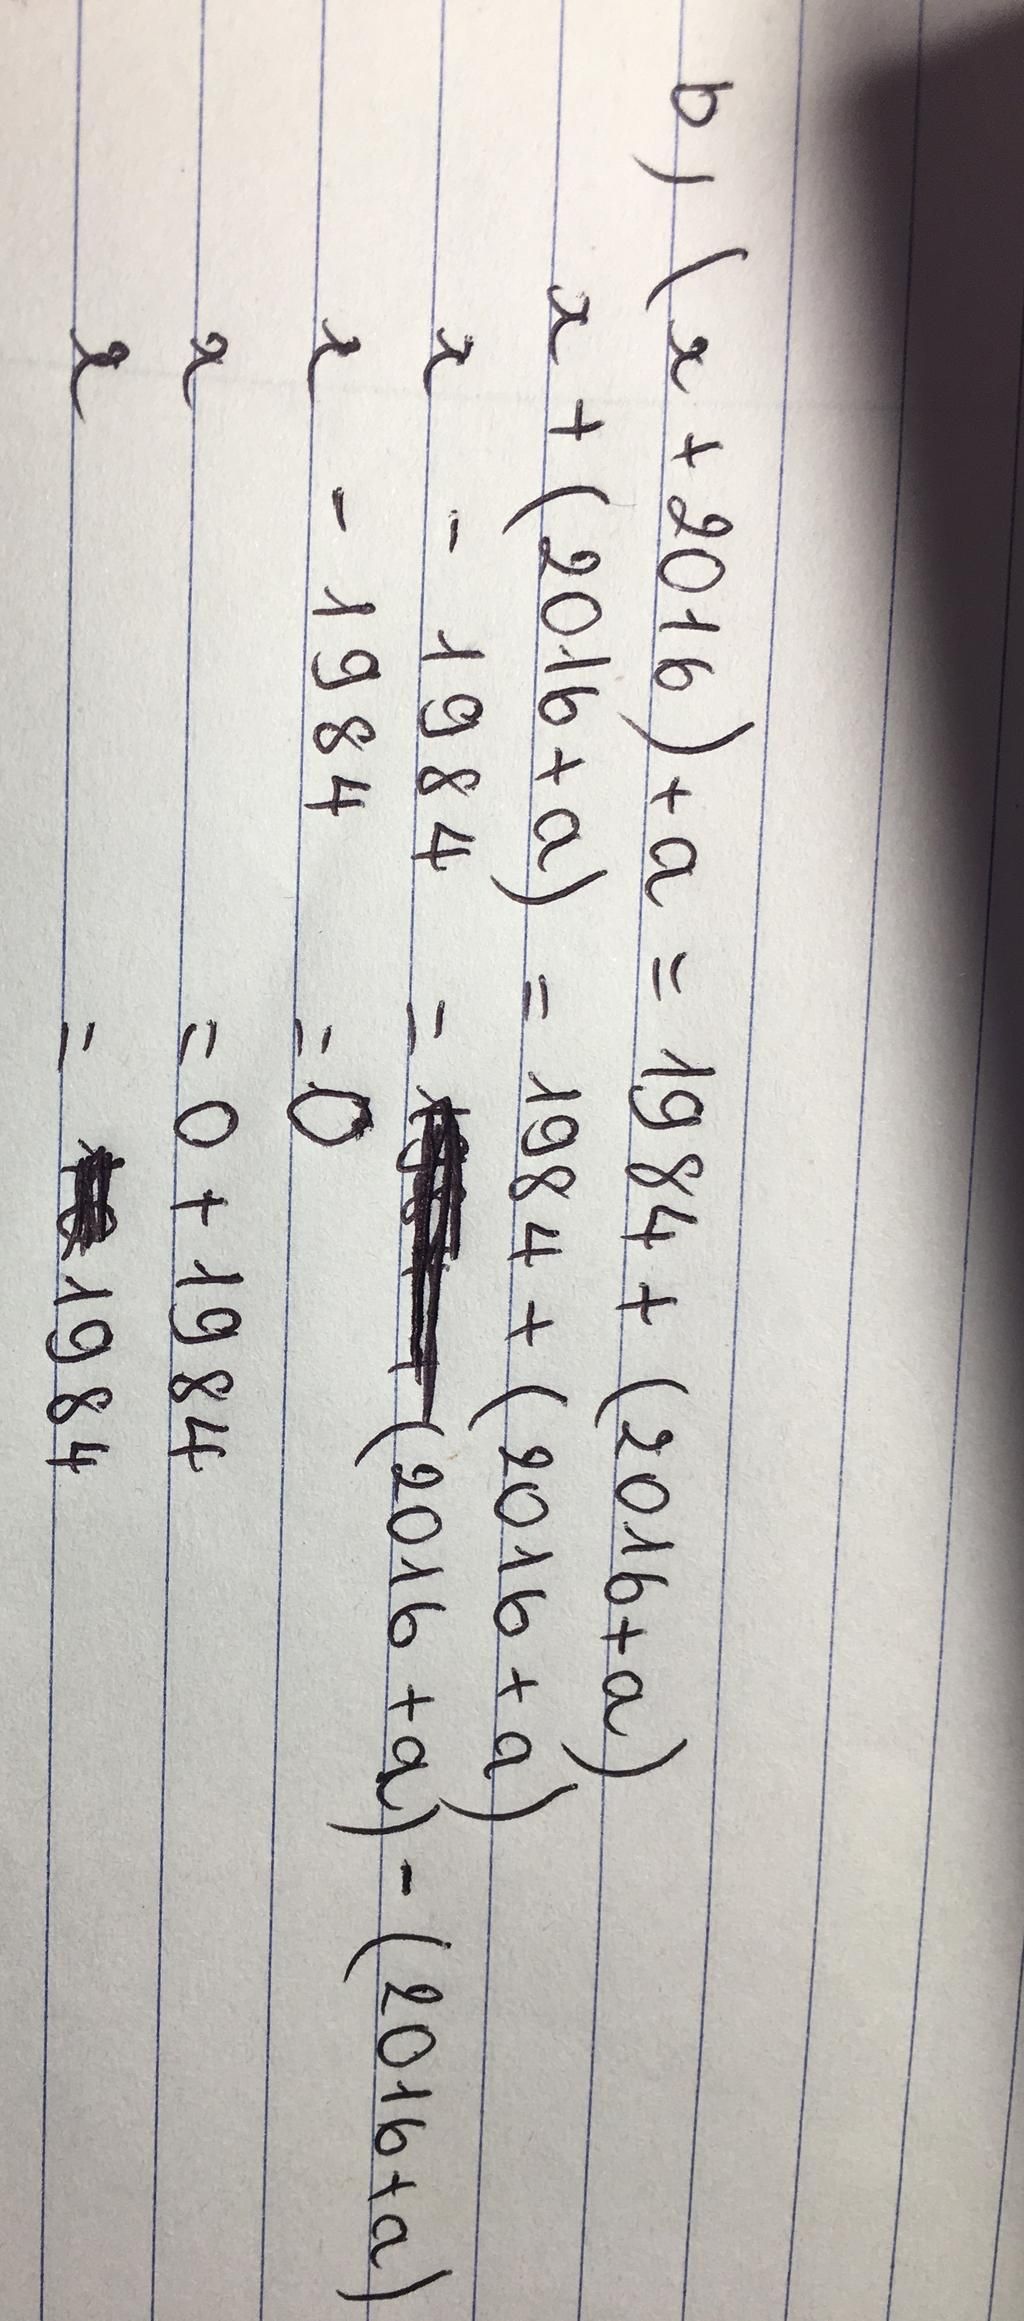 b) (x + 2016) + a = 1984 + (2016 + a)
x + (2016 + a) = 1984 + (2016 + a)
x - 1984 = (2016 + a) - (2016 + a)
x - 1984 = 0
x = 0 + 1984
x = 1984